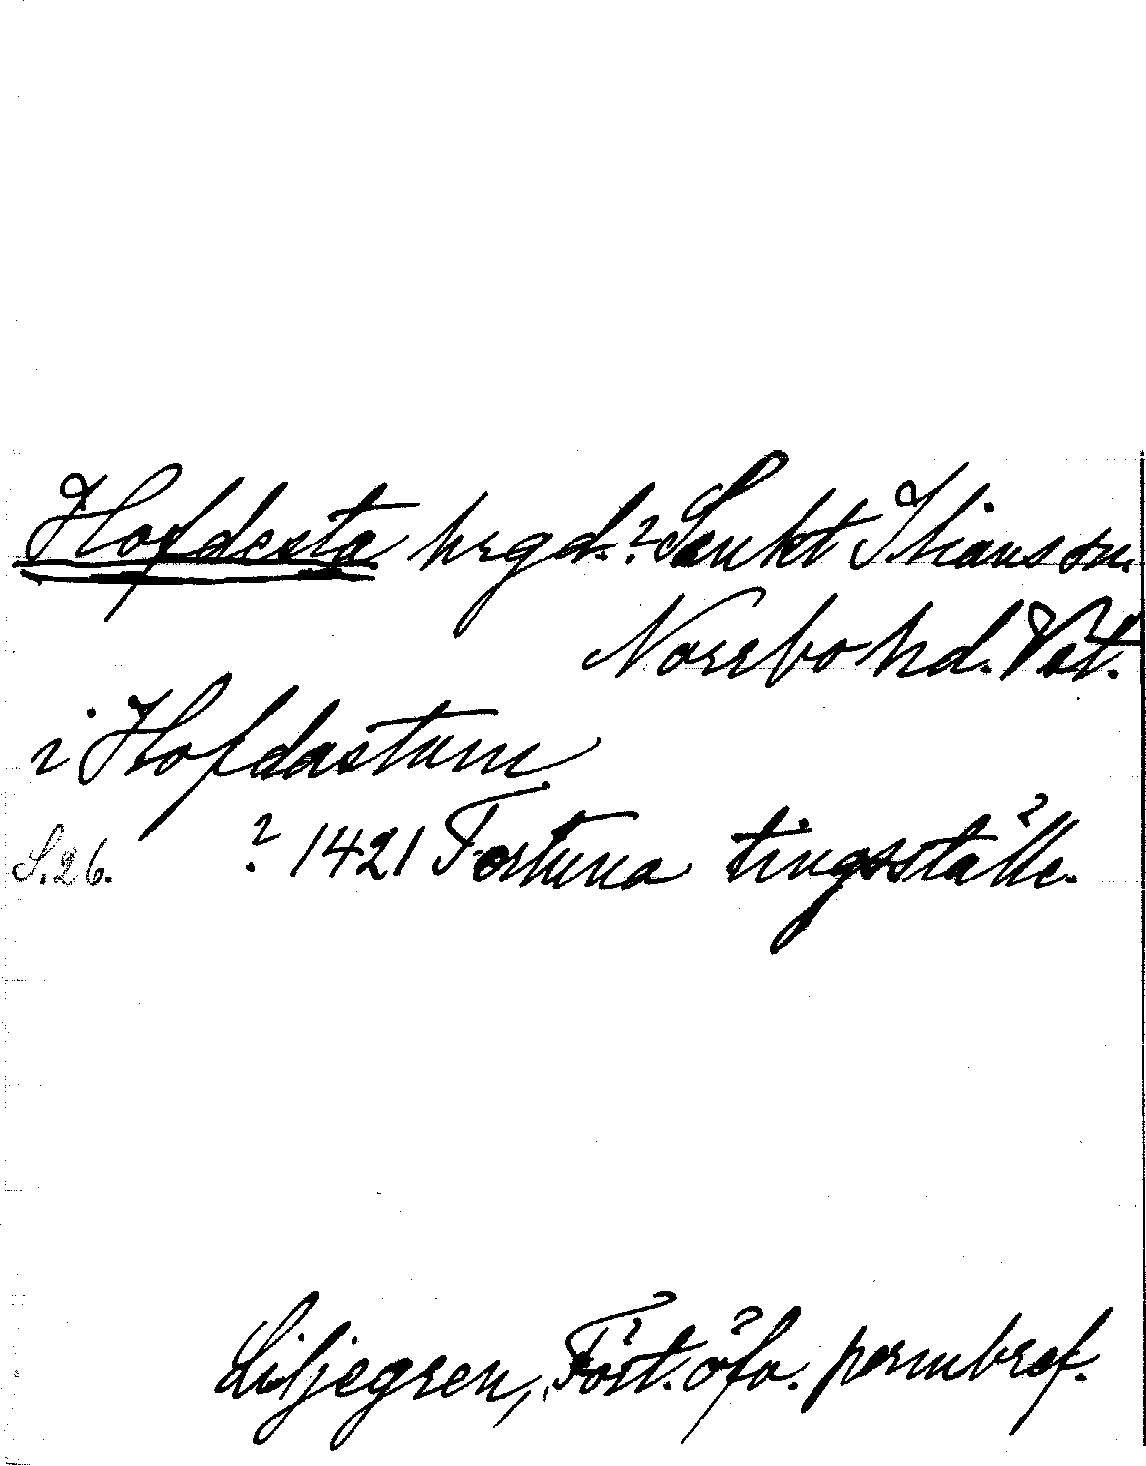 Hofdesta hrgd.? Sankt Ilians sn.
Norrbo hd. Vst.
i Hofdastum
S.26. ? 1421 Fortuna tingsställe.
Liljegren, Fört. öfv. permbref.